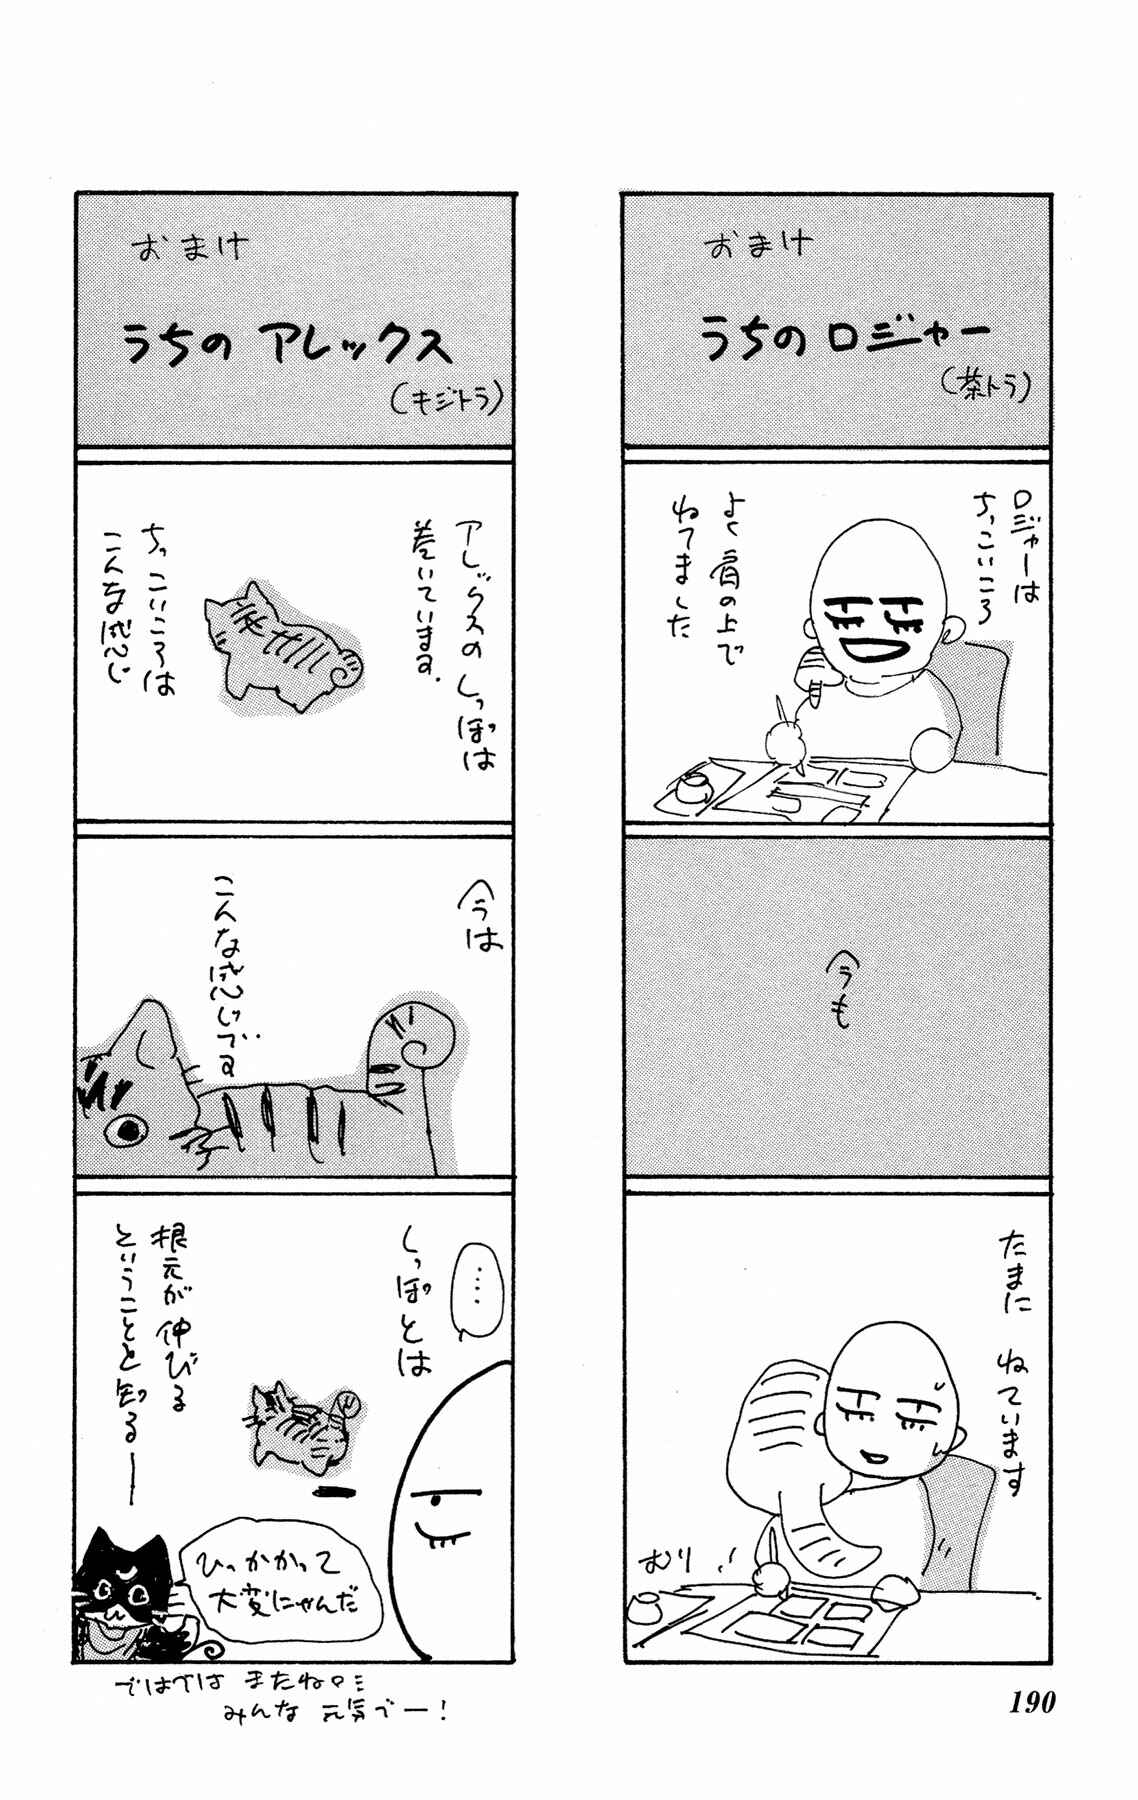 おまけ
うちのロジャー
(茶トラ)
ロジャーは
ちっこいころ
よく肩の上で
ねてました
今も
たまに ねています
むり
おまけ
うちの アレックス
(キジトラ)
アレックスのしっぽは
巻いています。
ちっこいころは
こんな感じ
今は
こんな感じです
‥‥
しっぽとは
根元が伸びる
ということを知るー
ひっかかって
大変にゃんだ
ではでは またね
みんな 元気でー!
190